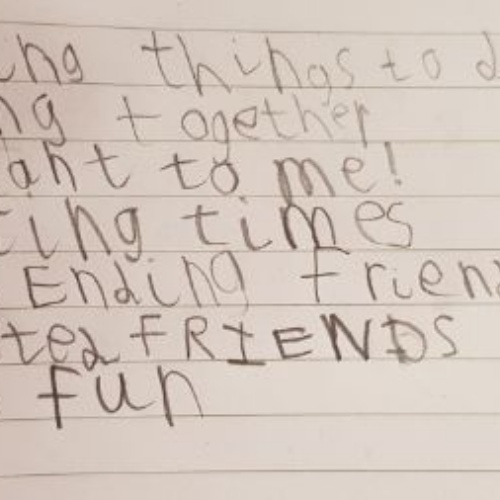 ing things to d
ng together
ant to me!
ting times
Ending frien
ted FRIENDS
fun